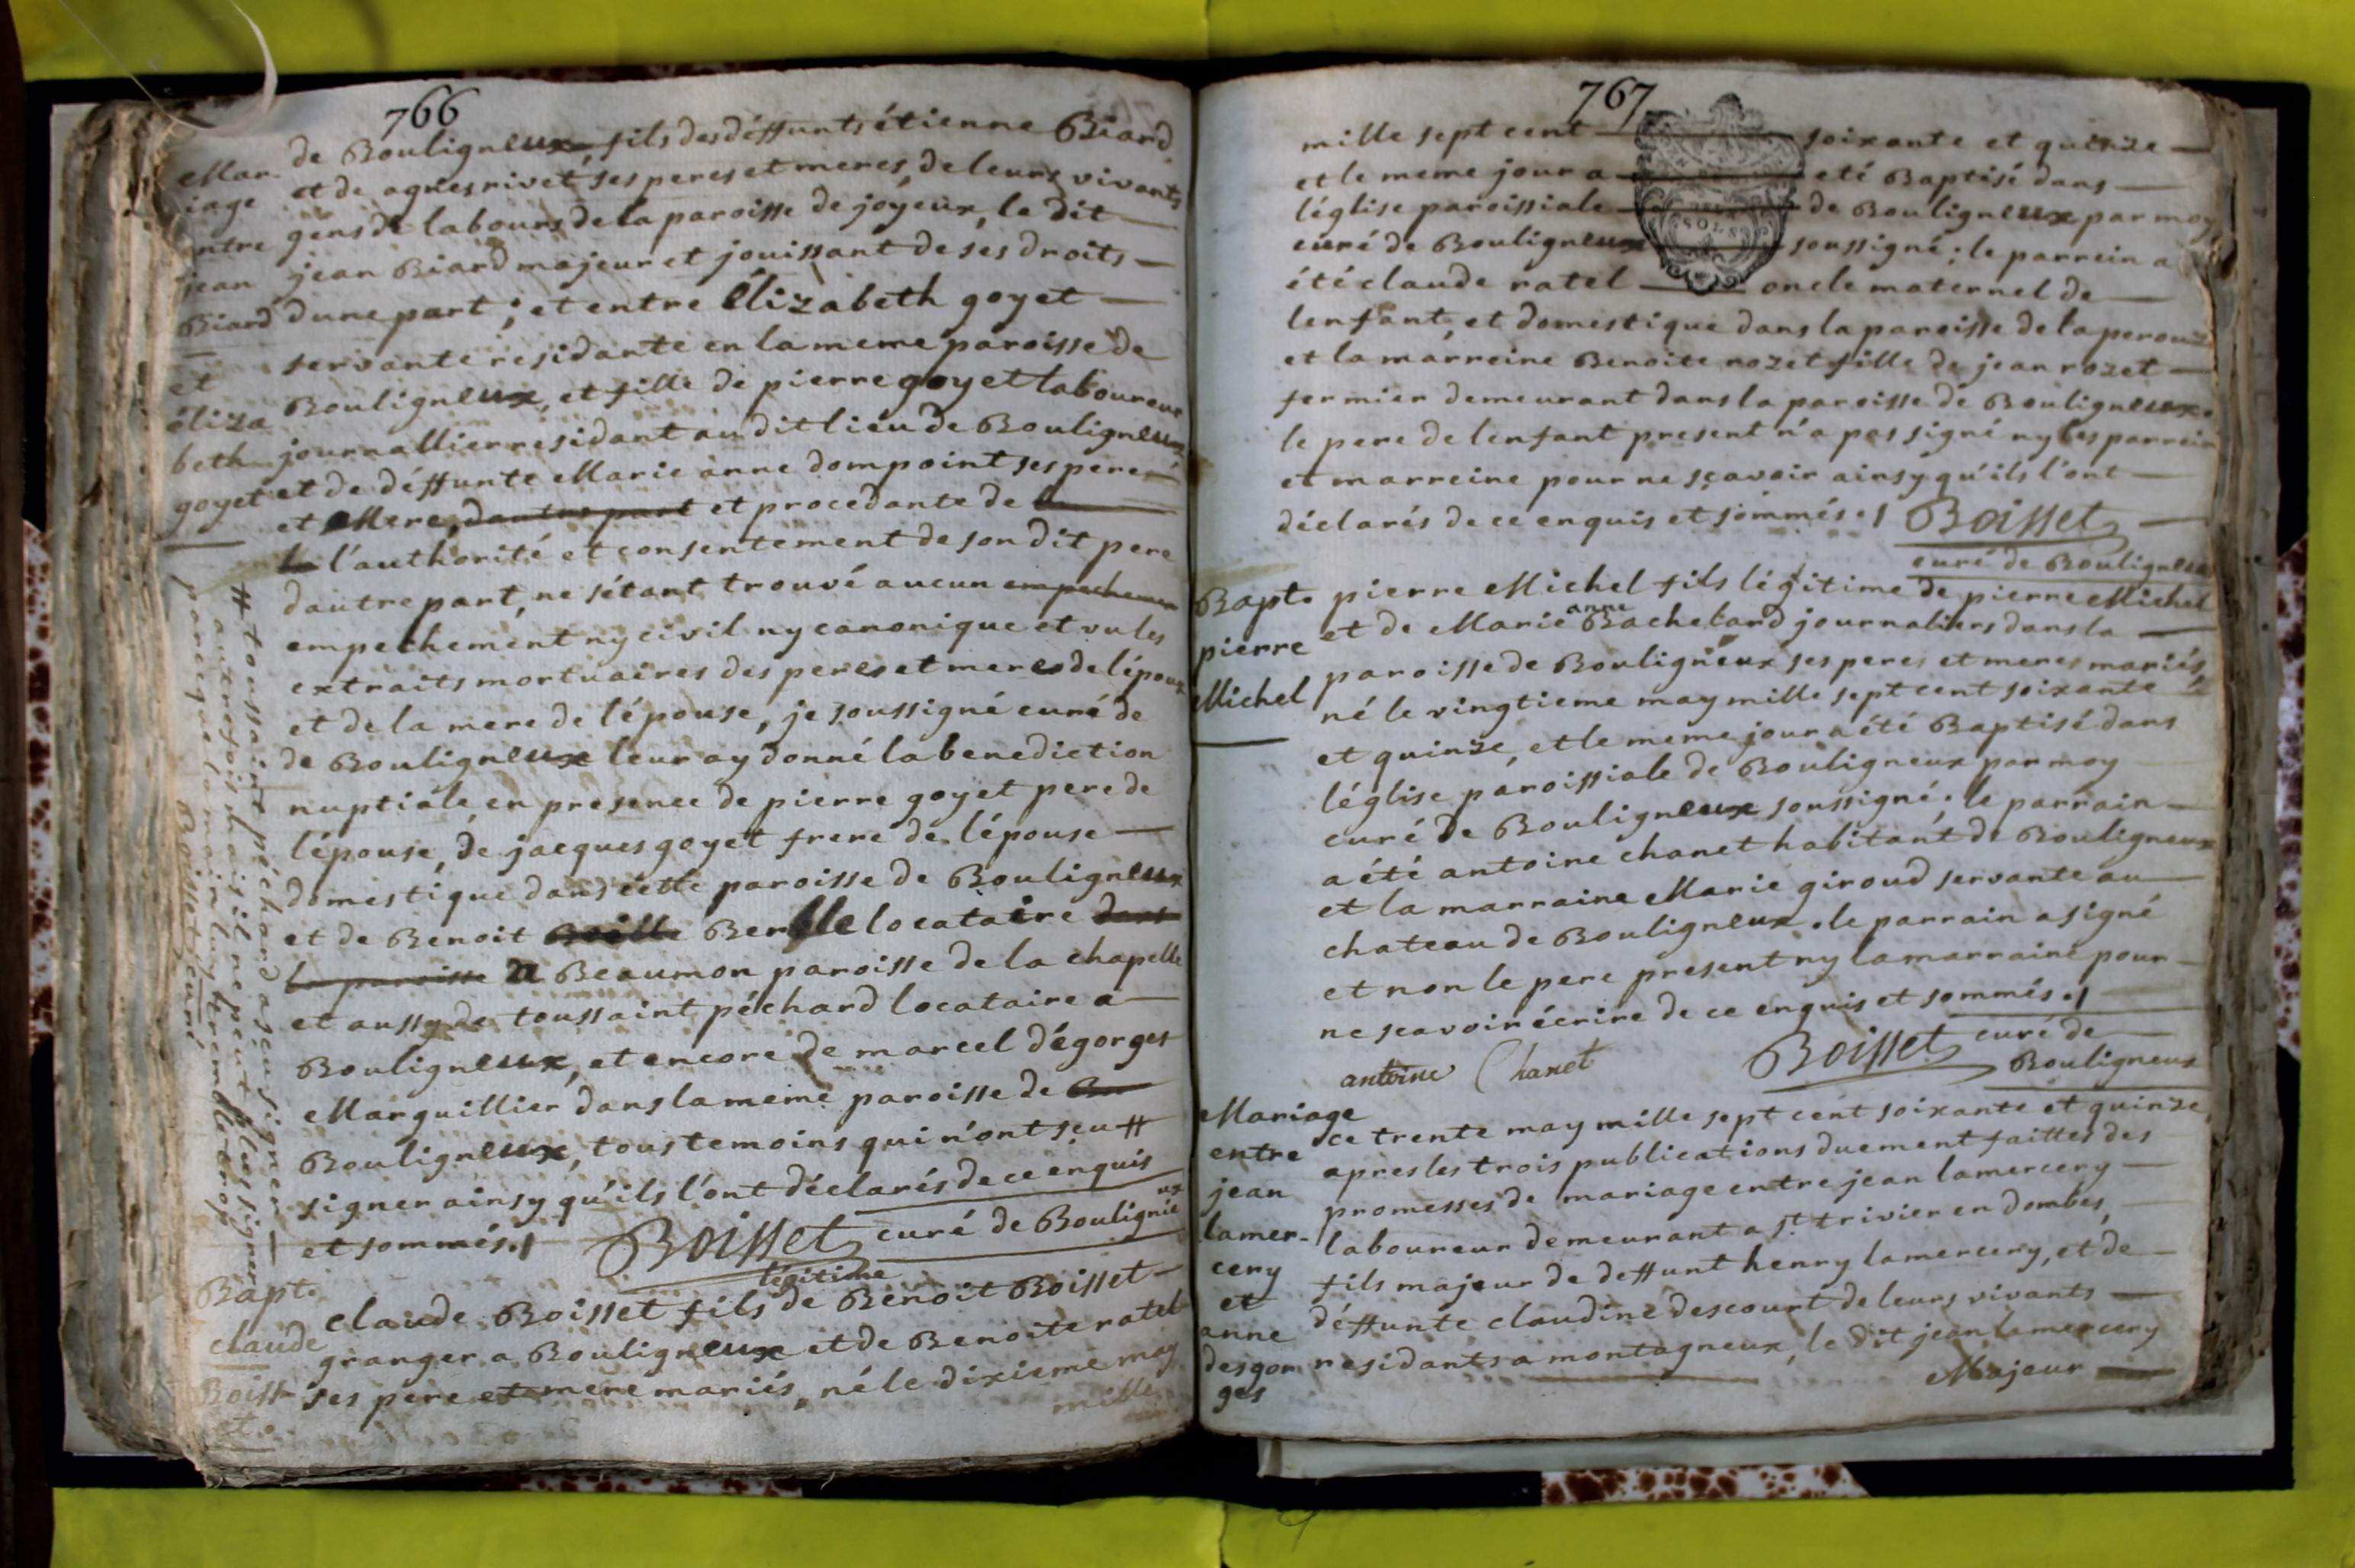 766
Mar-
iage
entre
jean
Biard
et
éliza
beth
goyet
de Bouligneux, fils des déffunts étienne Biard
et de agnes rivet, ses peres et meres, de leurs vivants
gens de labours de la paroisse de joyeux, le dit
jean Biard majeur et jouissant de ses droits
dune part ; et entre Élizabeth goyet
servante residante en la meme paroisse de
Bouligneux, et fille de pierre goyet laboureur
journallier residant au dit lieu de Bouligneux
et de déffunte Marie anne dompoint ses pere
et Mere, dautre part et procedante de la
la l'authorité et consentement de son dit pere
dautre part, ne s'étant trouvé aucun empechemen
empechement ny civil ny canonique et vu les
extraits mortuaires des peres et meres de l'époux
et de la mere de l'épouse, je soussigné curé de
de Bouligneux leur ay donné la benediction
nuptiale, en presence de pierre goyet pere de
l'épouse, de jacques goyet frere de l'épouse
domestique dans cette paroisse de Bouligneux
et de Benoit locataire dans
la paroisse a Beaumon paroisse de la chapelle
et aussy de toussaint péchard locataire a
Bouligneux, et encore de marcel dégorges
Marguillier dans la meme paroisse de Bou
Bouligneux, tous temoins qui n'ont sçu #
signer ainsy qu'ils l'ont déclarés de ce enquis
et sommés ./
Boisset curé de Bouligneux
# toussaint péchard a sçu signer
autrefois mais il ne peut plus signer
parceque la main luy tremble trop
Boisset curé
Bapt.
claude
Boiss-
et.
claude Boisset fils légitime de Benoit Boisset
granger a Bouligneux et de Benoite ratel
ses pere et mere mariés, né le dixieme may
mille
767
mille sept cent soixante et quinze
et le meme jour a eté Baptisé dans
léglise paroissiale de Bouligneux par moy
curé de Bouligneux soussigné ; le parrein a
été claude ratel oncle maternel de
lenfant, et domestique dans la paroisse de la perouze
et la marreine Benoite rozet fille de jean rozet
fermier demeurant dans la paroisse de Bouligneux.
le pere de lenfant present n'a pas signé ny les parrein
et marreine pour ne sçavoir ainsy qu'ils l'ont
déclarés de ce enquis et sommés ./ Boisset
curé de Bouligneux
Bapt.
pierre
Michel
pierre Michel fils légitime de pierre Michel
et de Marie anne Bachelard journaliers dans la
paroisse de Bouligneux ses peres et meres mariés,
né le vingtieme may mille sept cent soixante
et quinze, et le meme jour a été Baptisé dans
léglise paroissiale de Bouligneux par moy
curé de Bouligneux soussigné, le parrain
a été antoine chanet habitant de Bouligneux
et la marraine Marie giroud servante au
chateau de Bouligneux. le parrain a signé
et non le pere present ny la marraine pour
ne scavoir écrire de ce enquis et sommés ./
antoine Chanet
Boisset curé de
Bouligneux
Mariage
entre
jean
lamer-
cery
et
anne
desgor
ges
ce trente may mille sept cent soixante et quinze,
apres les trois publications duement faittes des
promesses de mariage entre jean lamercery
laboureur demeurant a st. trivier en dombes,
fils majeur de deffunt henry lamercery, et de
déffunte claudine descourt de leurs vivants
residants a montagneux, le dit jean lamercery
Majeur